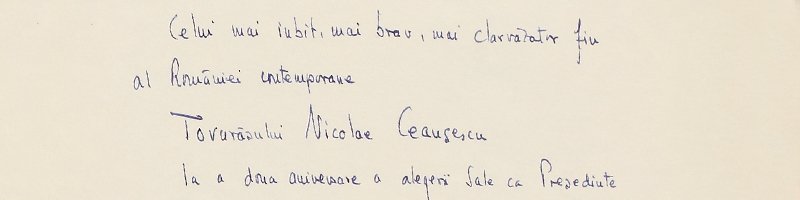 Celui mai iubit, mai brav, mai clarvăzător fiu
al României contemporane
Tovarășului Nicolae Ceaușescu
la a doua aniversare a alegerii Sale ca Președinte